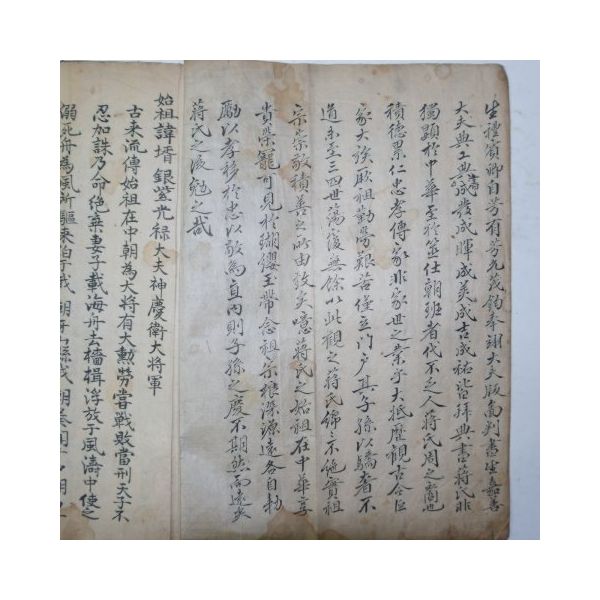 生禮賓卿自芳有芳允茂鈞奉翊大夫版面判書生嘉善
大夫典工典書成發成暉成美成吉成祐皆拜典書蔣氏非
獨顯於中華至於筮仕朝班者代不乏人蔣氏周之裔也
積德累仁忠孝傳家非家世之業乎大抵歷觀古今巨
家大族厥祖勤勞艱苦僅立門戶其子孫以驕奢不
道未至三四世蕩復無餘以此觀之蔣氏綿不絶實祖
宗崇敬積善之所由致矣噫蔣氏之始祖在中華享
貴榮寵可見於瑚纓玉帶念祖宗根深源遠各自勅
勵以孝移於忠以敬爲直內則子孫之慶不期然而遠矣
蔣氏之派勉之哉
始祖諱壻銀瑩光禄大夫神慶衛大將軍
古来流傳始祖在中朝為大將有大勲勞嘗戰敗當刑天子不
忍加誅乃命絶棄妻子載海舟去檣楫浮放于風濤中使之
溺死舟為風所驅来泊于我